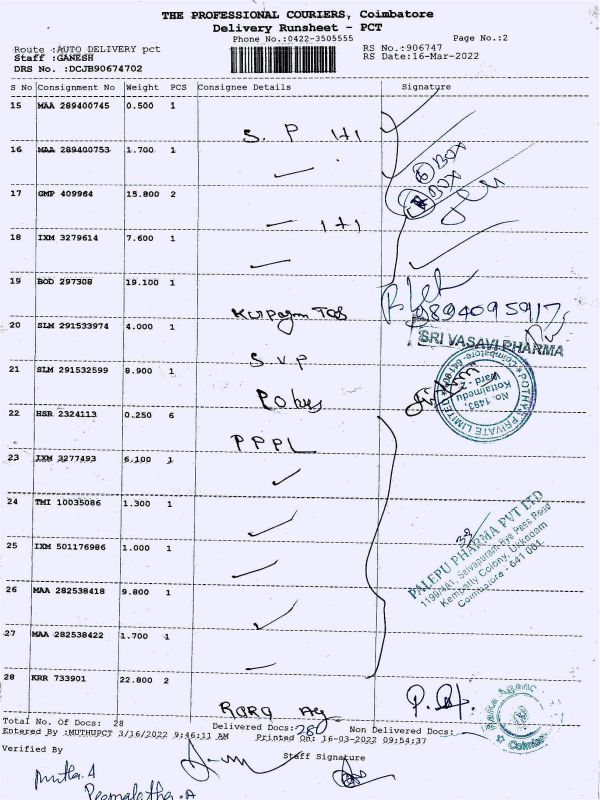 THE PROFESSIONAL COURIERS, Coimbatore
Delivery Runsheet - PCT
Phone No.:0422-3505555
Page No.:2
Route :AUTO DELIVERY pct
RS No.:906747
Staff :GANESH
RS Date:16-Mar-2022
DRS No. :DCJB90674702
S No Consignment No Weight PCS Consignee Details Signature
15 MAA 289400745 0.500 1
S. P
16 MAA 289400753 1.700 1
BOX
BOX
17 GMP 409964 15.800 2
18 IXM 3279614 7.600 1
19 BOD 297308 19.100 1
9894095917
20 SLM 291533974 4.000 1
SRI VASAVI PHARMA
S V P
21 SLM 291532599 8.900 1
POTHYS PRIVATE LIMITED
No. 1493,
Kottaimedu
Ward - 2
Coimbatore-
22 HSR 2324113 0.250 6
P P P L
23 IXM 3277493 6.100 1
24 TMI 10035086 1.300 1
PALEPU PHARMA PVT LTD
1199/4A1, Selvapuram Bye Pass Road
Kempatty Colony, Ukkadam
Coimbatore - 641 001.
25 IXM 501176986 1.000 1
26 MAA 282538418 9.800 1
27 MAA 282538422 1.700 1
28 KRR 733901 22.800 2
RaRa Ag
Total No. Of Docs: 28
Delivered Docs: 28
Non Delivered Docs:
Entered By :MUTHUPCT 3/16/2022 9:46:11 AM
Printed On: 16-03-2022 09:54:37
Verified By
Staff Signature
Mutha.A
Premalatha.A